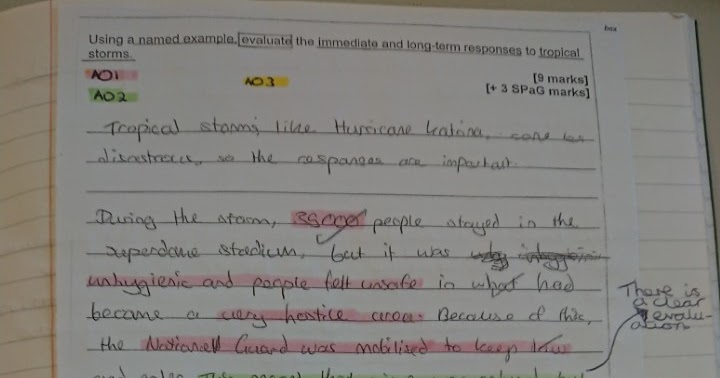 box
Using a named example, evaluate the immediate and long-term responses to tropical
storms.
[9 marks]
[+ 3 SPaG marks]
AO1
AO2
AO3
Tropical storms, like Hurricane Katrina, can be
disastrous, so the responses are important.
During the storm, 35000 people stayed in the
superdome stadium, but it was
unhygienic and people felt unsafe in what had
become a very hostile area. Because of this,
the National Guard was mobilised to keep law
There is
a clear
evalu-
ation